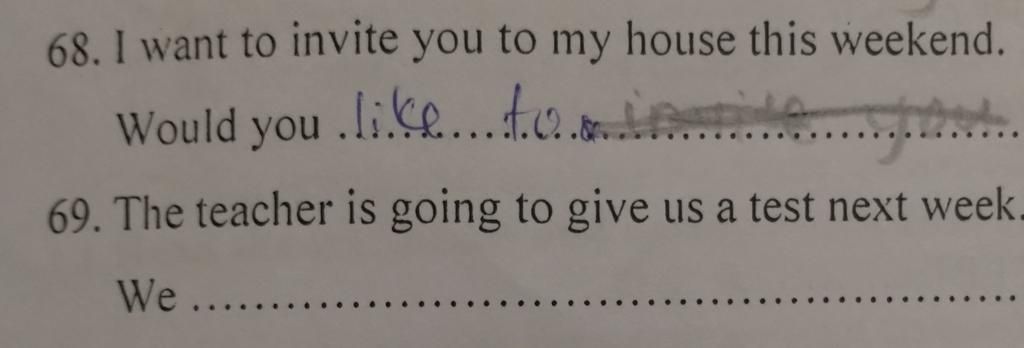 68. I want to invite you to my house this weekend.
Would you .like....to............................
69. The teacher is going to give us a test next week.
We ....................................................